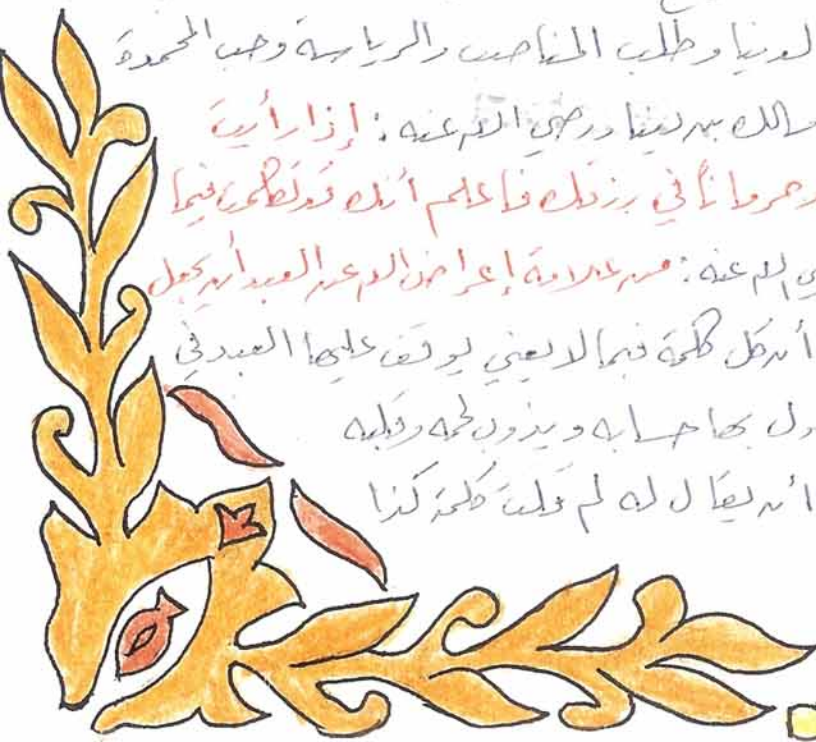 الدنيا وطلب المناصب والرياسة وحب المحمدة
مالك بن دينار رضي الله عنه: إذا رأيت
وحرمانا في رزقك فاعلم أنك قد تكلمت فيما
الله عنه: من علامة إعراض الله عن العبد أن يجعل
أن كل كلمة فيما لا يعني يوقف عليها العبد في
بها حسابه ويذوب لحمه وقلبه
أن يقال له لم قلت كلمة كذا